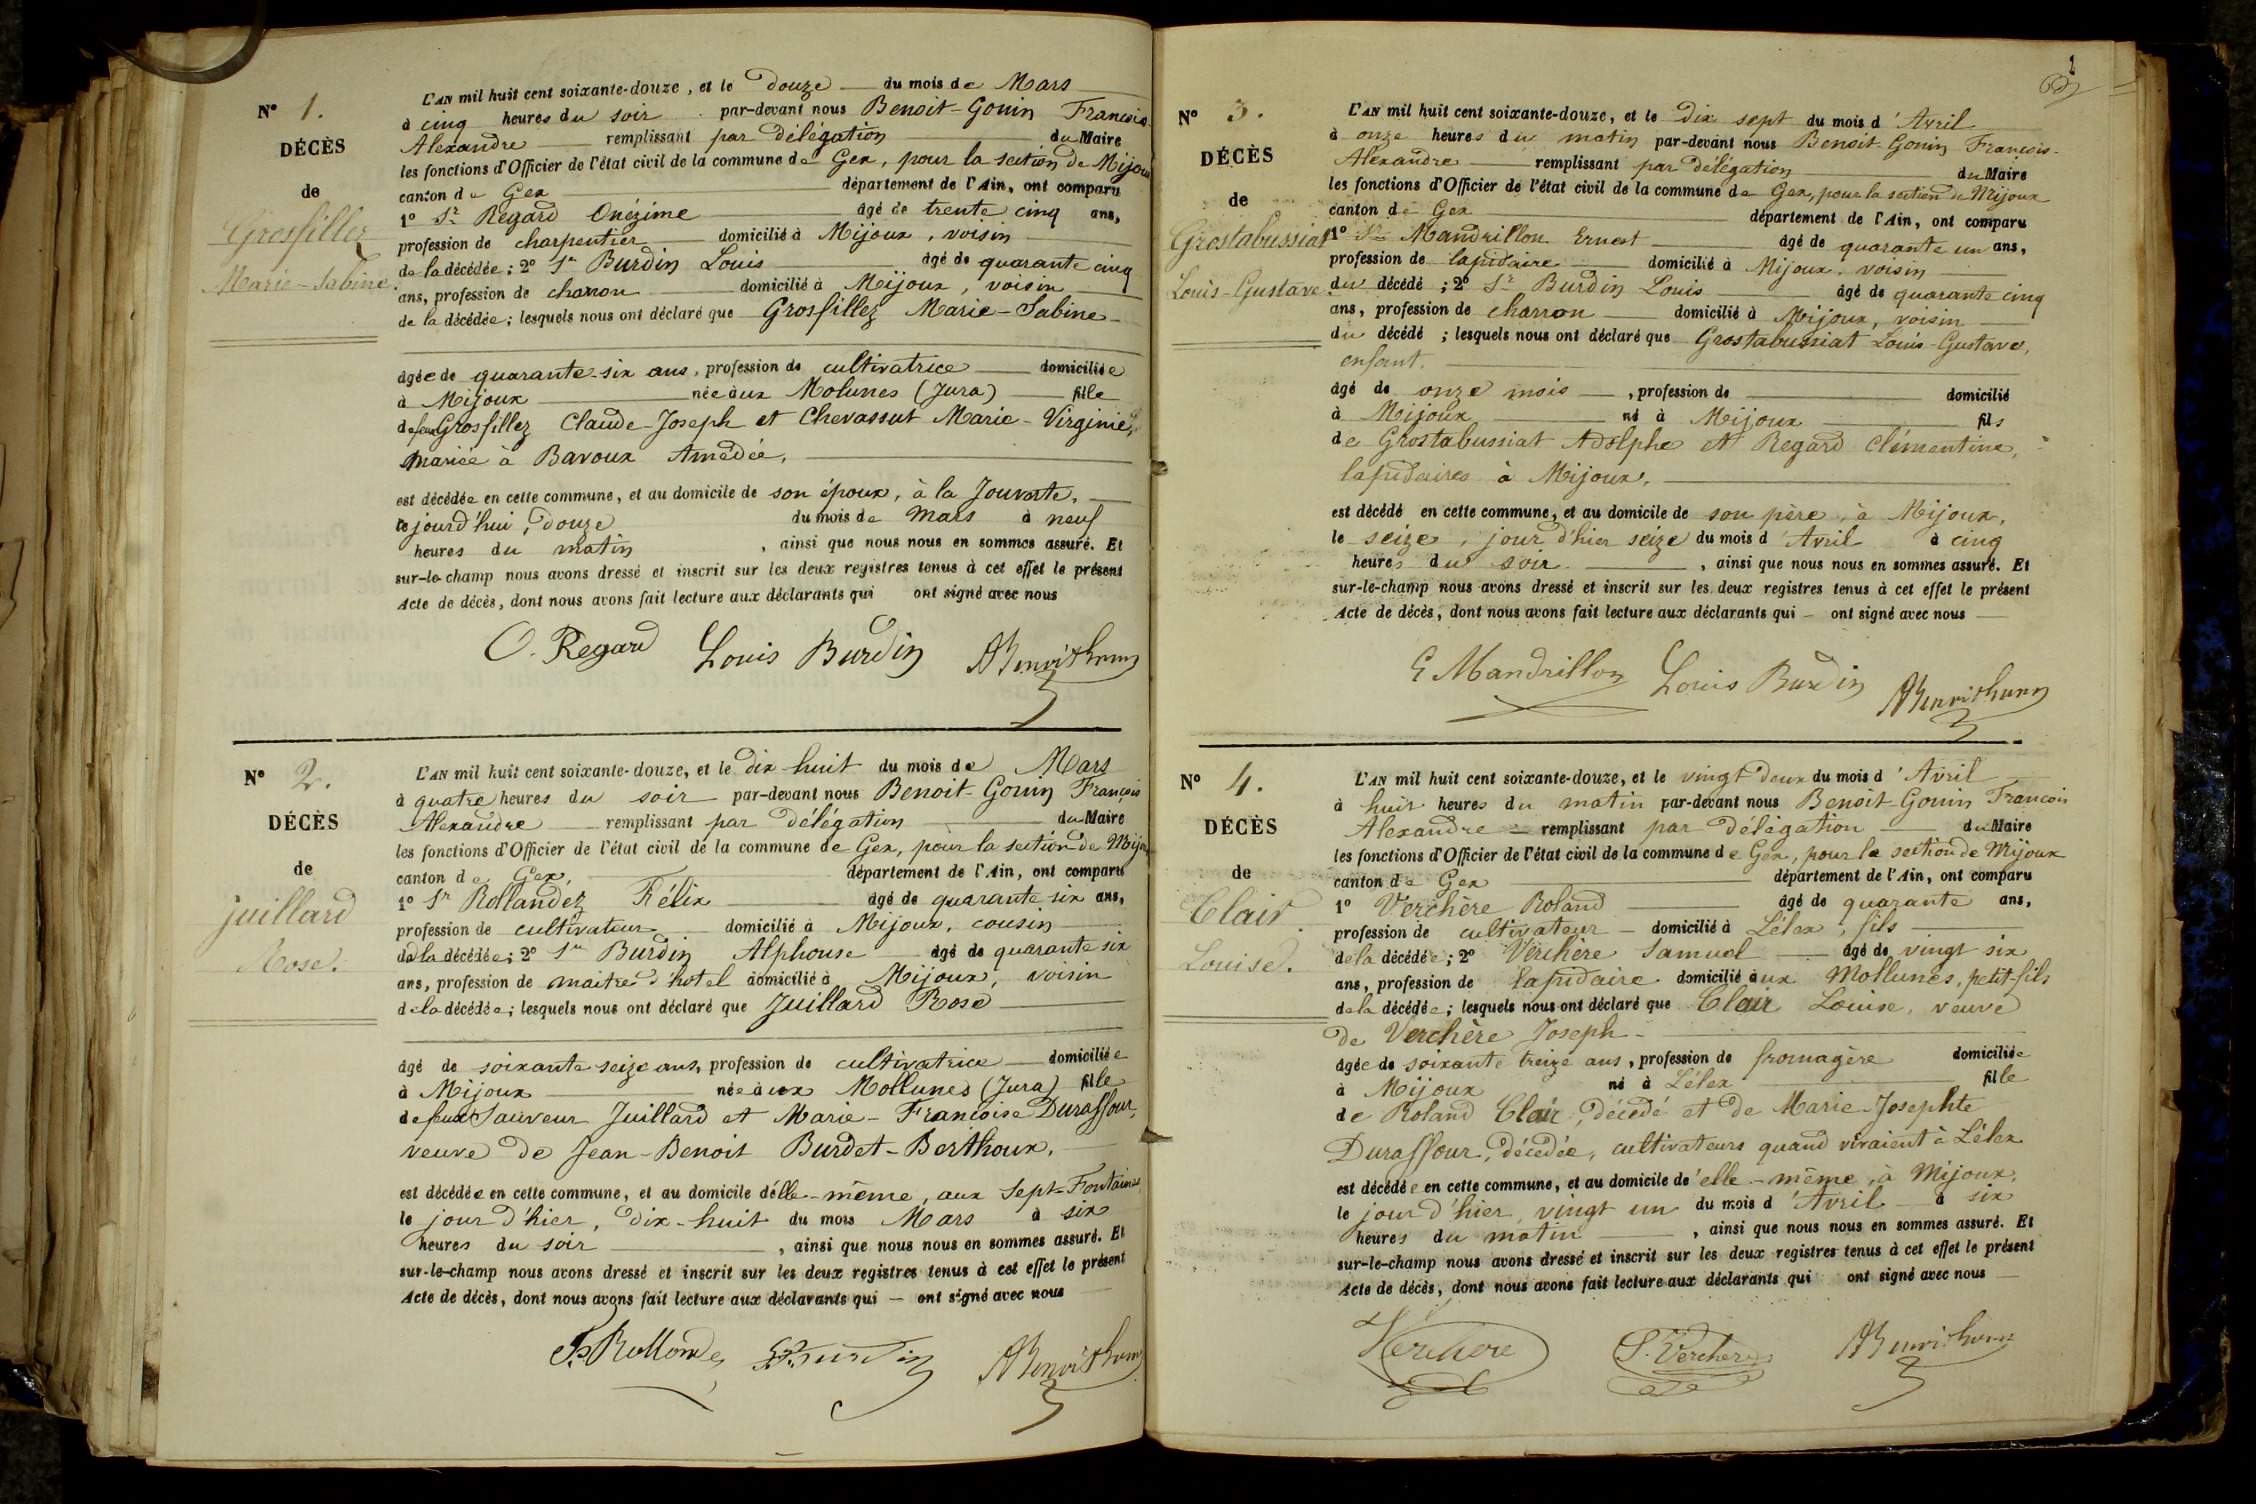 N° 1.
DÉCÈS
de
Grosfillez
Marie-Sabine.
L'AN mil huit cent soixante-douze, et le douze du mois de Mars
à cinq heures du soir par-devant nous Benoit-Gonin François
Alexandre remplissant par délégation du Maire
les fonctions d'Officier de l'état civil de la commune de Gex, pour la section de Mijoux
canton de Gex département de l'Ain, ont comparu
1° Sr Regard Onézime âgé de trente cinq ans,
profession de charpentier domicilié à Mijoux, voisin
de la décédée; 2° Sr Burdin Louis âgé de quarante cinq
ans, profession de charron domicilié à Mijoux, voisin
de la décédée; lesquels nous ont déclaré que Grosfillez Marie-Sabine
âgée de quarante-six ans, profession de cultivatrice domiciliée
à Mijoux née aux Molunes (Jura) fille
de feu Grosfillez Claude-Joseph et Chevassut Marie-Virginie,
mariée à Bavoux Amédée,
est décédée en cette commune, et au domicile de son époux, à la Jouvarte,
le jourd'hui, douze du mois de Mars à neuf
heures du matin, ainsi que nous nous en sommes assuré. Et
sur-le-champ nous avons dressé et inscrit sur les deux registres tenus à cet effet le présent
Acte de décès, dont nous avons fait lecture aux déclarants qui ont signé avec nous
O. Regard Louis Burdin
N° 2.
DÉCÈS
de
Juillard
Rose.
L'AN mil huit cent soixante-douze, et le dix-huit du mois de Mars
à quatre heures du soir par-devant nous Benoit-Gonin François
Alexandre remplissant par délégation du Maire
les fonctions d'Officier de l'état civil de la commune de Gex, pour la section de Mijoux
canton de Gex département de l'Ain, ont comparu
1° Sr Rollandez Félix âgé de quarante six ans,
profession de cultivateur domicilié à Mijoux, cousin
de la décédée; 2° Sr Burdin Alphonse âgé de quarante six
ans, profession de maitre d'hotel domicilié à Mijoux, voisin
de la décédée; lesquels nous ont déclaré que Juillard Rose
âgé de soixante seize ans, profession de cultivatrice domiciliée
à Mijoux née aux Mollunes (Jura) fille
de feux Sauveur Juillard et Marie-Françoise Duraffour,
veuve de Jean-Benoit Burdet-Berthoux,
est décédée en cette commune, et au domicile d'elle-même, aux Sept-Fontaines,
le jour d'hier, dix-huit du mois Mars à six
heures du soir, ainsi que nous nous en sommes assuré. Et
sur-le-champ nous avons dressé et inscrit sur les deux registres tenus à cet effet le présent
Acte de décès, dont nous avons fait lecture aux déclarants qui — ont signé avec nous
N° 3.
DÉCÈS
de
Grostabussiat
Louis-Gustave.
L'AN mil huit cent soixante-douze, et le dix sept du mois d'Avril
à onze heures du matin par-devant nous Benoit-Gonin François-
Alexandre remplissant par délégation du Maire
les fonctions d'Officier de l'état civil de la commune de Gex, pour la section de Mijoux
canton de Gex département de l'Ain, ont comparu
1° Sr Mandrillon Ernest âgé de quarante un ans,
profession de lapidaire domicilié à Mijoux, voisin
du décédé; 2° Sr Burdin Louis âgé de quarante cinq
ans, profession de charron domicilié à Mijoux, voisin
du décédé; lesquels nous ont déclaré que Grostabussiat Louis-Gustave,
enfant.
âgé de onze mois, profession de domicilié
à Mijoux né à Mijoux fils
de Grostabussiat Adolphe et Regard Clémentine,
lapidaires à Mijoux,
est décédé en cette commune, et au domicile de son père, à Mijoux,
le seize, jour d'hier seize du mois d'Avril à cinq
heures du soir, ainsi que nous nous en sommes assuré. Et
sur-le-champ nous avons dressé et inscrit sur les deux registres tenus à cet effet le présent
Acte de décès, dont nous avons fait lecture aux déclarants qui — ont signé avec nous
E Mandrillon Louis Burdin
N° 4.
DÉCÈS
de
Clair
Louise.
L'AN mil huit cent soixante-douze, et le vingt deux du mois d'Avril
à huit heures du matin par-devant nous Benoit-Gonin François
Alexandre remplissant par délégation du Maire
les fonctions d'Officier de l'état civil de la commune de Gex, pour la section de Mijoux
canton de Gex département de l'Ain, ont comparu
1° Verchère Roland âgé de quarante ans,
profession de cultivateur domicilié à Lélex, fils
de la décédée; 2° Verchère Samuel âgé de vingt six
ans, profession de lapidaire domicilié aux Mollunes, petit-fils
de la décédée; lesquels nous ont déclaré que Clair Louise, veuve
de Verchère Joseph
âgée de soixante treize ans, profession de fromagère domiciliée
à Mijoux né à Lélex fille
de Roland Clair, décédé et de Marie-Josephte
Duraffour, décédée, cultivateurs quand vivaient à Lélex
est décédée en cette commune, et au domicile d'elle-même, à Mijoux,
le jour d'hier, vingt un du mois d'Avril à six
heures du matin, ainsi que nous nous en sommes assuré. Et
sur-le-champ nous avons dressé et inscrit sur les deux registres tenus à cet effet le présent
Acte de décès, dont nous avons fait lecture aux déclarants qui ont signé avec nous
Verchère S. Verchère